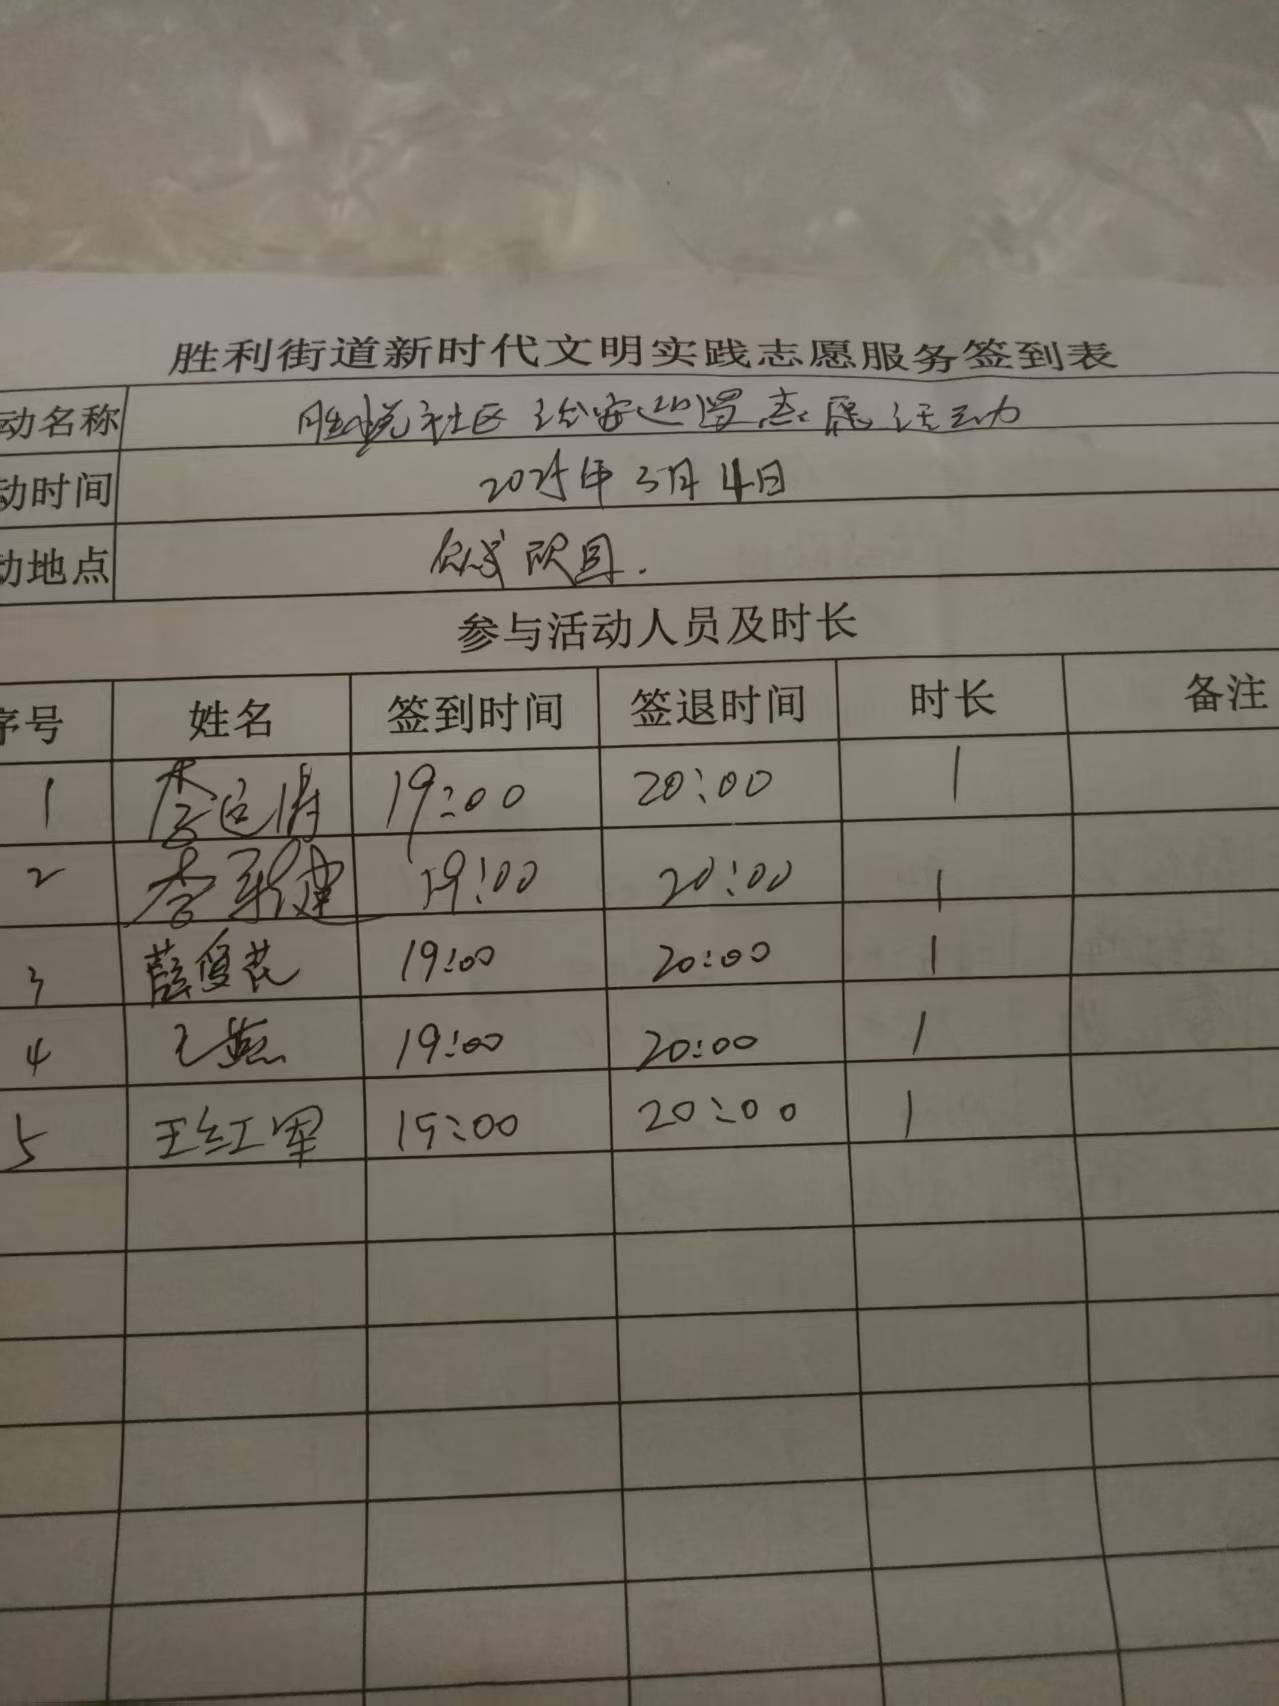 胜利街道新时代文明实践志愿服务签到表
动名称 胜悦社区治安巡逻志愿活动
动时间 2025年3月4日
动地点
参与活动人员及时长
序号 姓名 签到时间 签退时间 时长 备注
1 李 19:00 20:00 1
2 李 建 19:00 20:00 1
3 薛俊花 19:00 20:00 1
4 王燕 19:00 20:00 1
5 王红军 19:00 20:00 1